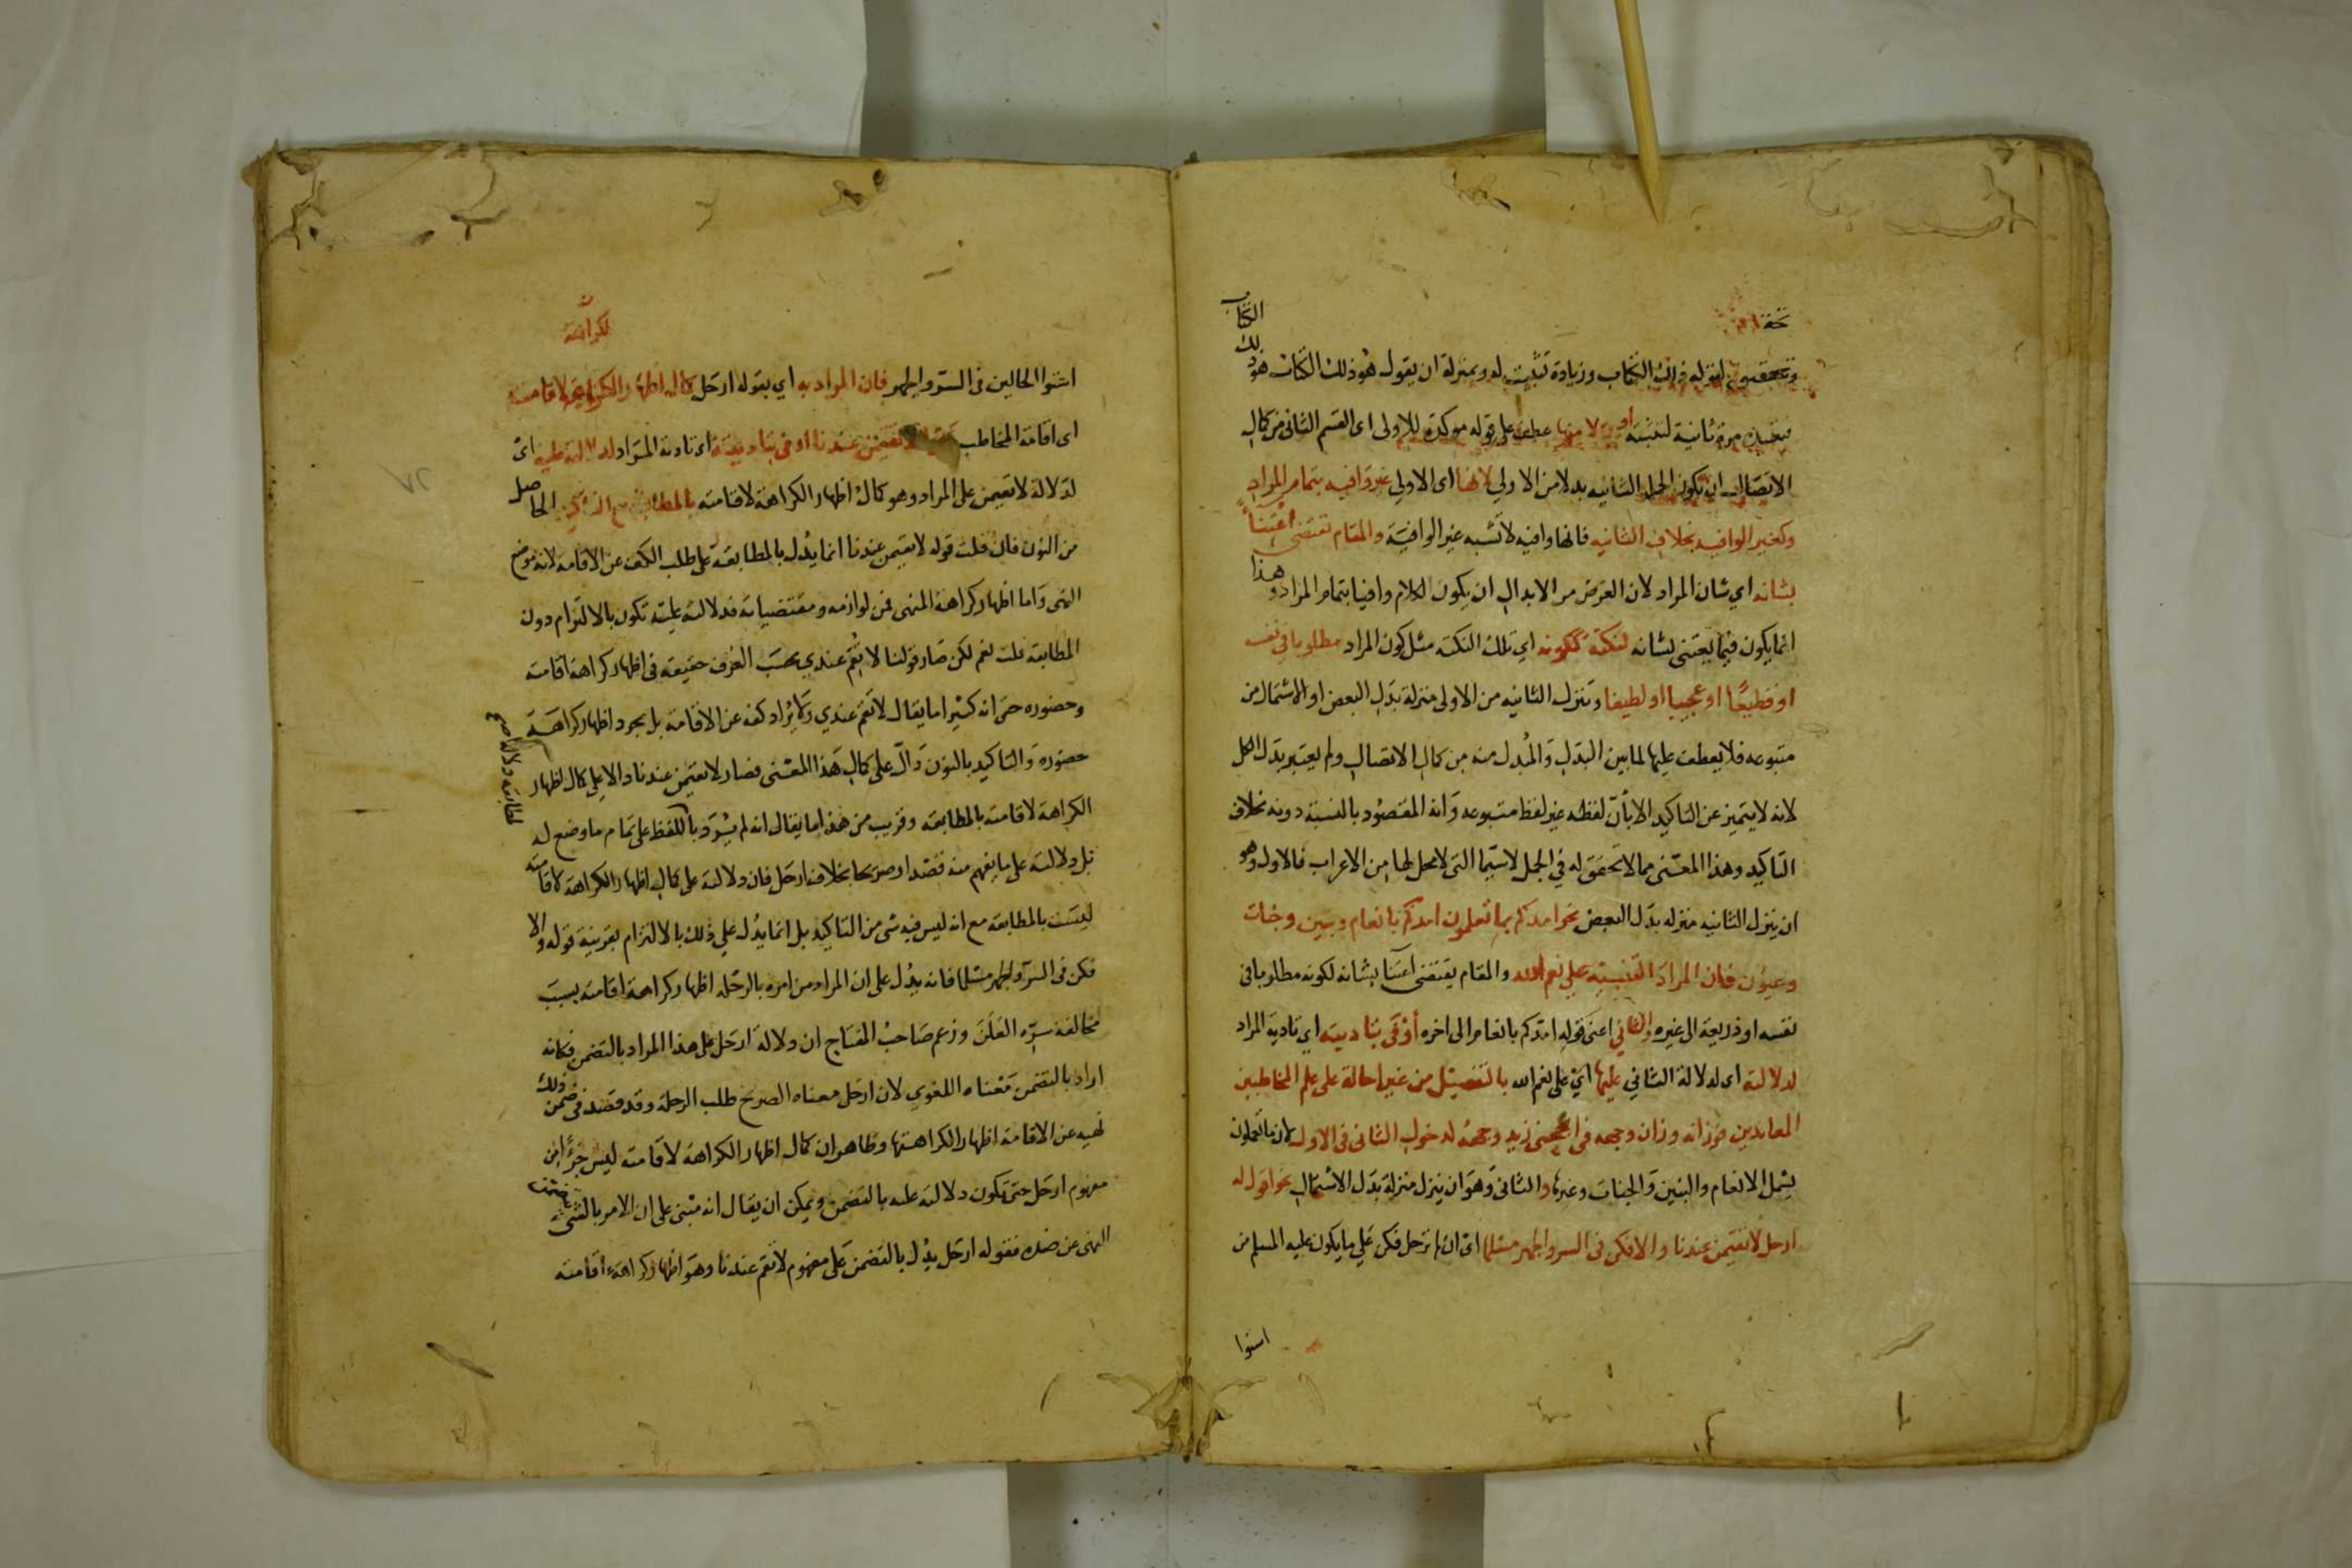 وتحقيق لقوله ذلك الكتاب وزيادة تثبيت له وبمنزلة ان يقول هو ذلك الكتاب هو ذلك الكتاب
فيعيده مرة ثانية لتثبته او بدلا منها عطف على قوله موكدة للاولى اى القسم الثانى من كمال
الاتصال ان تكون الجملة الثانيه بدلا من الاولي لانها اى الاولي غير وافيه بتمام المراد
وكغير الوافيه بخلاف الثانيه فانها وافيه لا تشبه غير الوافية والمقام تقتضى اعتناً
بشانه اي شان المراد لان الغرض من الابدال ان يكون الكلام وافيا بتمام المراد وهذا
انما يكون فيما يعتنى بشانه لنكتة ككونه اي تلك النكتة مثل كون المراد مطلوبا في نفسه
او فظيعًا او عجيبا او لطيفا وتنزل الثانيه من الاولى منزلة بدل البعض او الاشتمال من
متبوعه فلا يعطف عليها لما بين البدل والمبدل منه من كمال الاتصال ولم يعتبر بدل الكل
لانه لا يتميز عن التاكيد الا بأنّ لفظه غير لفظ متبوعه وانه المقصود بالنسبة دونه بخلاف
التاكيد وهذا المعنى مما لا تحقق له في الجمل لاسيما التى لا محل لها من الاعراب فالاول وهو
ان ينزل الثانيه منزله بدل البعض نحو امدكم بما تعلمون امدكم بانعام وبنين وجنات
وعيون فان المراد التنبيه على نعم الله والمقام يقتضى اعتنا بشانه لكونه مطلوبا فى
نفسه او ذريعة الى غيره والثاني اعنى قوله امدكم بانعام الى اخره أوفى بتاديته اي تادية المراد
لدلالته اى لدلالة الثاني عليها اي على نعم الله بالتفصيل من غير احالة على علم المخاطبين
المعاندين فوزانه وزان وجهه فى اعجبنى زيد وجهه لدخول الثانى فى الاول لان ما تعلمون
يشمل الانعام والبنين والجنات وغيرها والثانى وهو ان ينزل منزلة بدل الاشتمال نحو اقول له
ارحل لا تقيمن عندنا والا فكن فى السر والجهر مسلما اى ان لم ترحل فكن على ما يكون عليه المسلم من
استوا
لكراهة
استوا الحالين فى السر والجهر فان المراد به اي بقوله ارحل كمال اظهار الكراهة لاقامته
اى اقامة المخاطب وقوله لا تقيمن عندنا اوفى بتاديته اى تادية المراد لدلالته عليه اى
لدلالة لا تقيمن على المراد وهو كمال اظهار الكراهة لاقامته بالمطابقة مع التاكيد الحاصل
من النون فان قلت قوله لا تقيمن عندنا انما يدل بالمطابقه على طلب الكف عن الاقامه لانه موضوع
النهى واما اظهار كراهة المنهى فمن لوازمه ومقتضياته فدلالته عليه تكون بالالتزام دون
المطابقه قلت نعم لكن صار قولنا لا تقم عندي بحسب العرف حقيقه فى اظهار كراهة اقامته
وحضوره حتى انه كثيرا ما يقال لا تقم عندي ولا يراد كفه عن الاقامة بل مجرد اظهار كراهة
حضوره والتاكيد بالنون دالّ على كمال هذا المعنى فصار لا تقيمن عندنا دالا على كمال اظهار
الكراهة لاقامته بالمطابقه وقريب من هذا ما يقال انه لم يرد باللفظ على تمام ما وضع له
بل دلالته على ما يفهم منه قصدا وصريحا بخلاف ارحل فان دلالته على كمال اظهار الكراهة لاقامته
ليست بالمطابقة مع انه ليس فيه شى من التاكيد بل انما يدل على ذلك بالالتزام بقرينة قوله والا
فكن فى السر والجهر مسلما فانه يدل على ان المراد من امره بالرحلة اظهار كراهة اقامته بسبب
مخالفة سره العلن وزعم صاحب المفتاح ان دلالة ارحل على هذا المراد بالتضمن فكانه
اراد بالتضمن معناه اللغوي لان ارحل معناه الصريح طلب الرحلة وقد قصد فى ضمن ذلك
نهيه عن الاقامة اظهار الكراهتها وظاهر ان كمال اظهار الكراهة لاقامته ليس جزءًا من
مفهوم ارحل حتى تكون دلالته عليه بالتضمن ويمكن ان يقال انه مبنى على ان الامر بالشى يتضمن
النهى عن ضده فقوله ارحل يدل بالتضمن على مفهوم لا تقم عندنا وهو اظهار كراهة اقامته